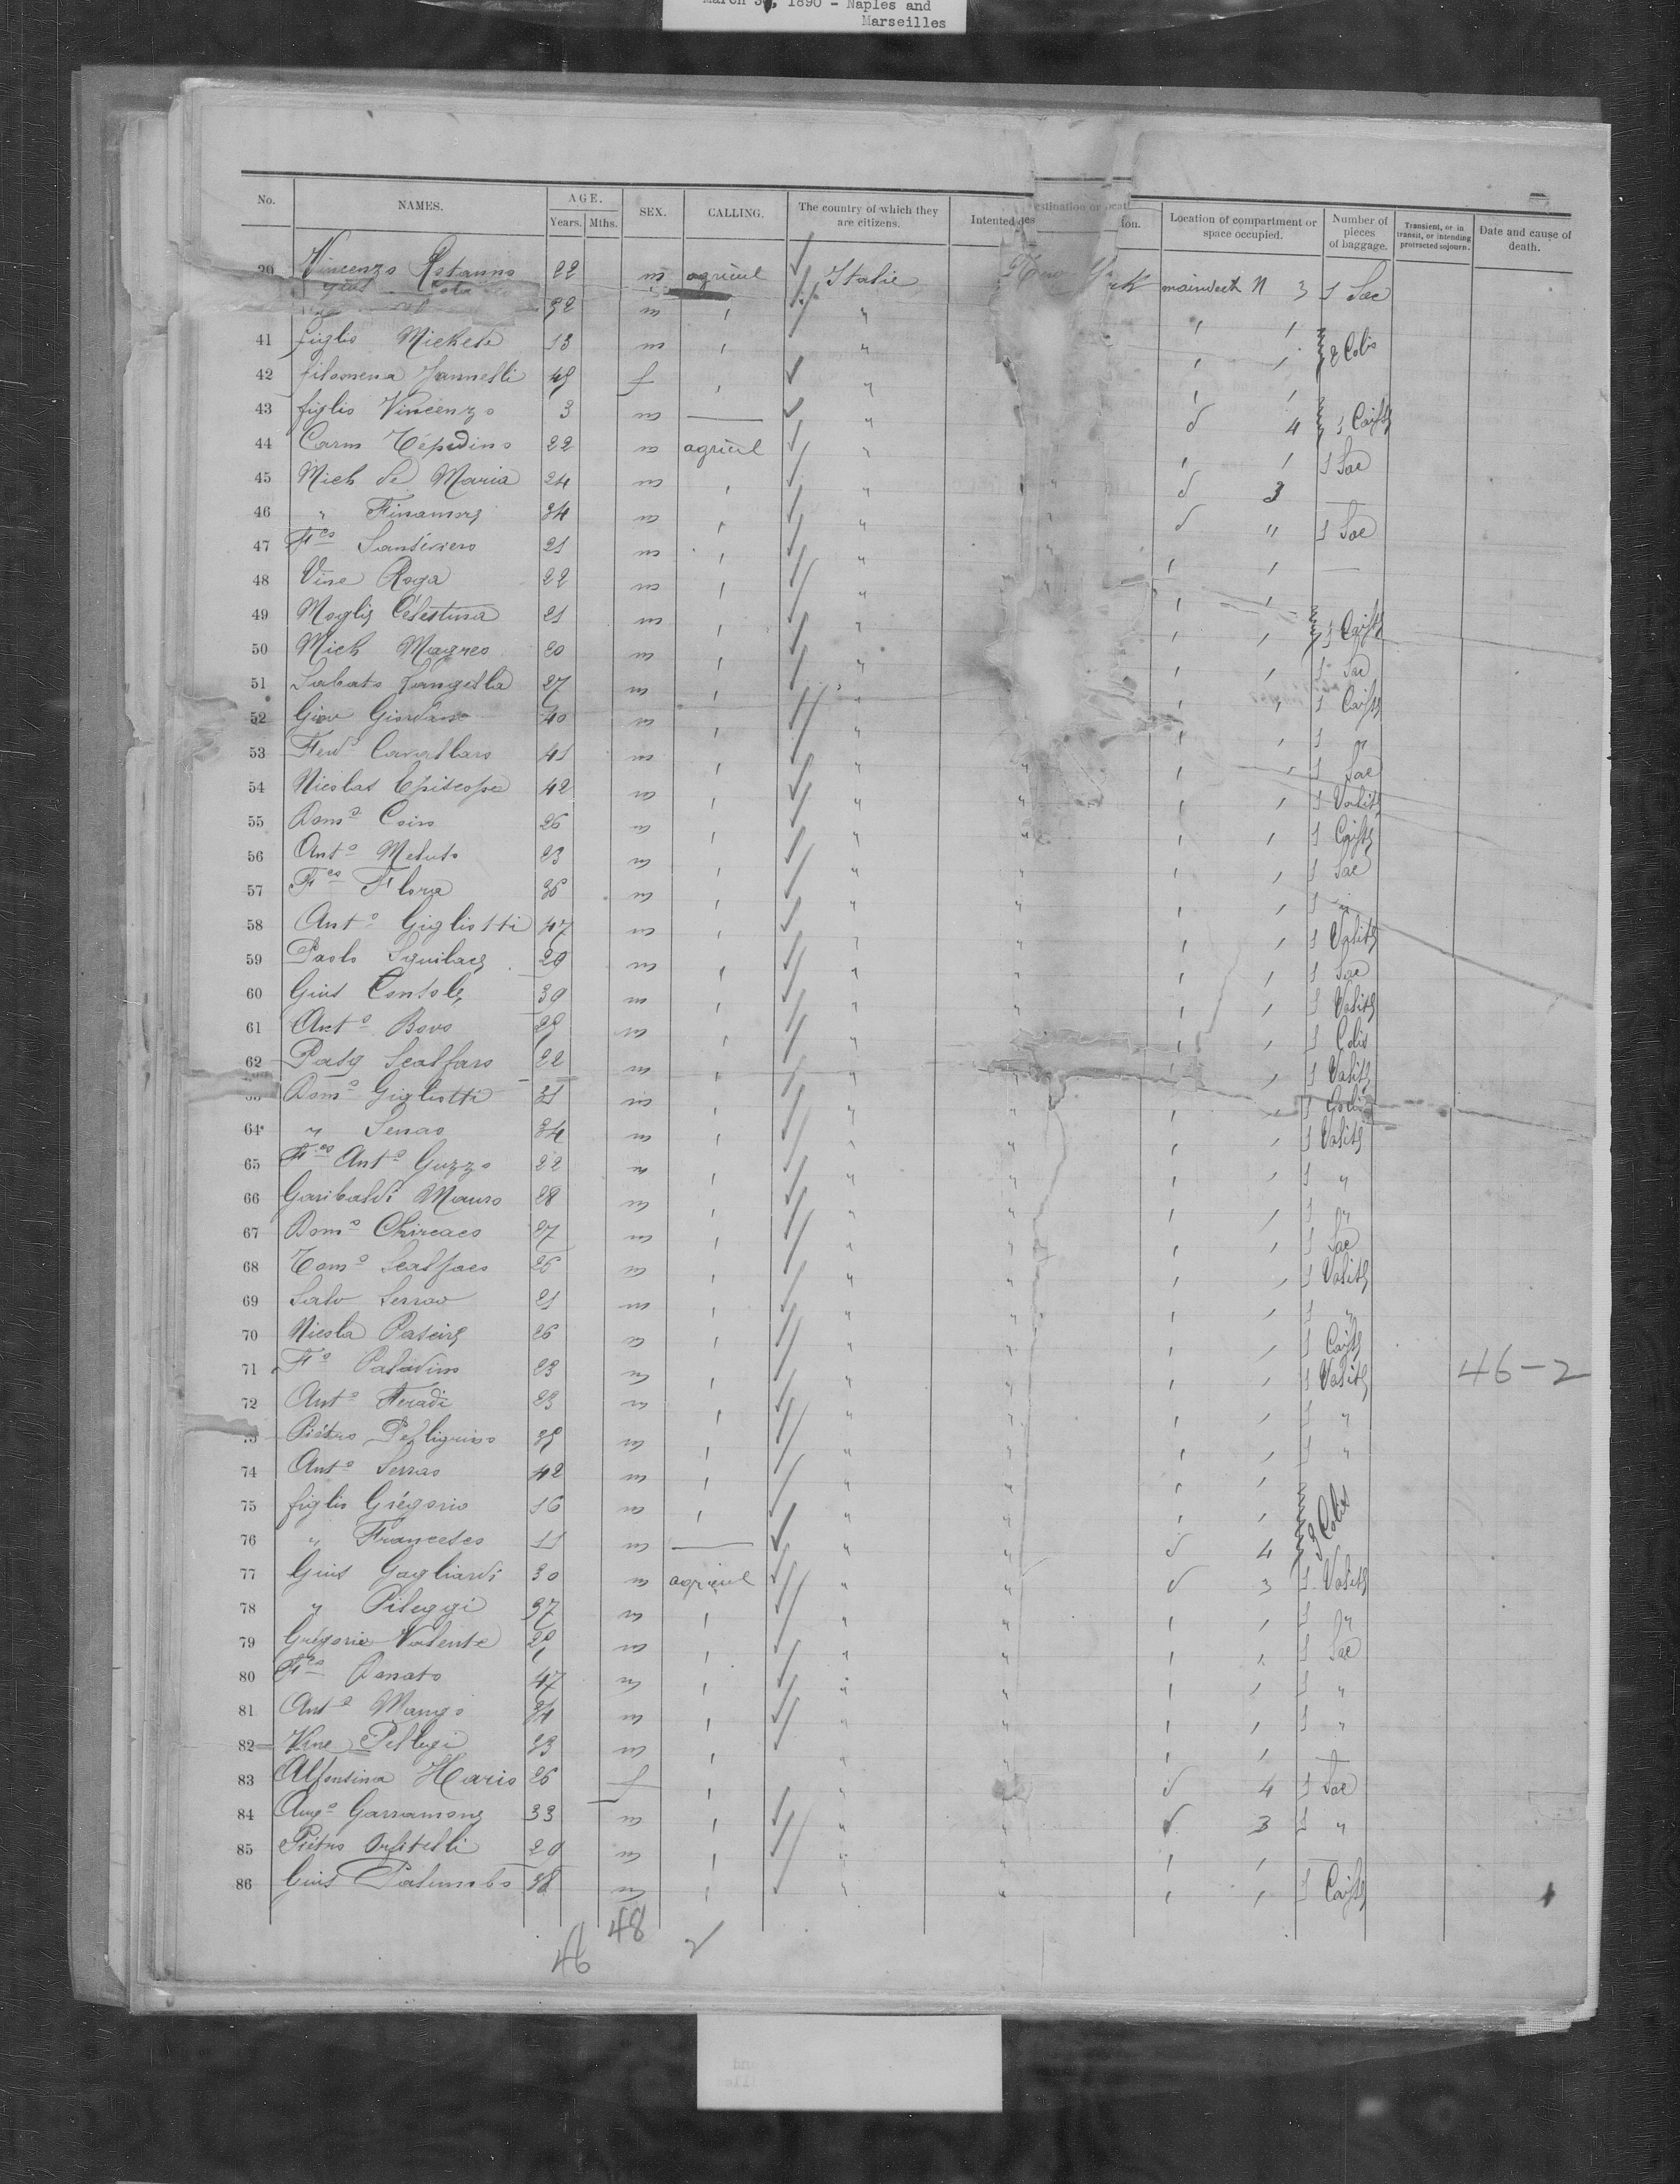 March 3, 1890 - Naples and
Marseilles
No. NAMES. AGE. Years. Mths. SEX. CALLING. The country of which they are citizens. Intented des tination or ion. Location of compartment or space occupied. Number of pieces of baggage. Transient, or in transit, or intending protracted sojourn. Date and cause of death.
Vincenzo 22 m agricul Italie New York maindeck N 3 1 Sac
32 m " "
41 figlio Michele 13 m " " 2 Colis
42 filomena Jannelli f " "
43 figlio Vincenzo 3 m — " d 4 1 Caisse
44 Carm Tépedino 22 m agricul " 1 Sac
45 Mich de Maria 24 m " " d 3 —
46 " Finamore 34 m " " d " 1 Sac
47 Fco Santoriero 21 m " " —
48 Vinc Roga 22 m " "
49 Moglie Célestina 21 m " " 1 Caisse
50 Mich Magreo 20 m " " 1 Sac
51 Sabato Langella 27 m " " 1 Caisse
52 Giov Giordano 40 m " " 1 "
53 Ferdo Cavallaro 41 m " " 1 Sac
54 Nicolas Episcopo 42 m " " 1 Valise
55 Domo 26 m " " 1 Caisse
56 Anto Meluto 23 m " " 1 Sac
57 Fco Floria 36 m " " 1 "
58 Anto Gigliotti 47 m " " 1 Valise
59 Paolo Squilace 29 m " " 1 Sac
60 Gius Console 39 m " " 1 Valise
61 Anto Bovo m " " 1 Colis
62 Pasq Scalfaro 22 m " " 1 Valise
63 Domo Gigliotti 31 m " " 1 Colis
64 " Serrao 34 m " " 1 Valise
65 Fco Anto Guzzo 22 m " " 1 "
66 Garibaldi Mauro 28 m " " 1 "
67 Domo Chircaco 27 m " " 1 Sac
68 Tomo 26 m " " 1 Valise
69 Salv Serrao 21 m " " 1 "
70 Nicola 26 m " " 1 Caisse
71 Fo Paladino 23 m " " 1 Valise 46-2
72 Anto Feradi 23 m " " 1 "
73 Piétro Pelligrino m " " 1 "
74 Anto Serrao 42 m " "
75 figlio Grégorio 16 m " " 3 Colis
76 " Francesco 11 m — " d 4
77 Gius Gagliardi 30 m agricul " d 3 1 Valise
78 " Pileggi 37 m " " 1 "
79 Grégorio Valente m " " 1 Sac
80 Fco Donato 47 m " " 1 "
81 Anto Mango 34 m " " 1 "
82 Vinc Pellegi 33 m " " —
83 Alfonsina Hario 26 f " " d 4 1 Sac
84 Augo Garramone 33 m " " d 3 1 "
85 Piétro 29 m " " —
86 Gius Palumbo 38 m " " 1 Caisse
46 48 2